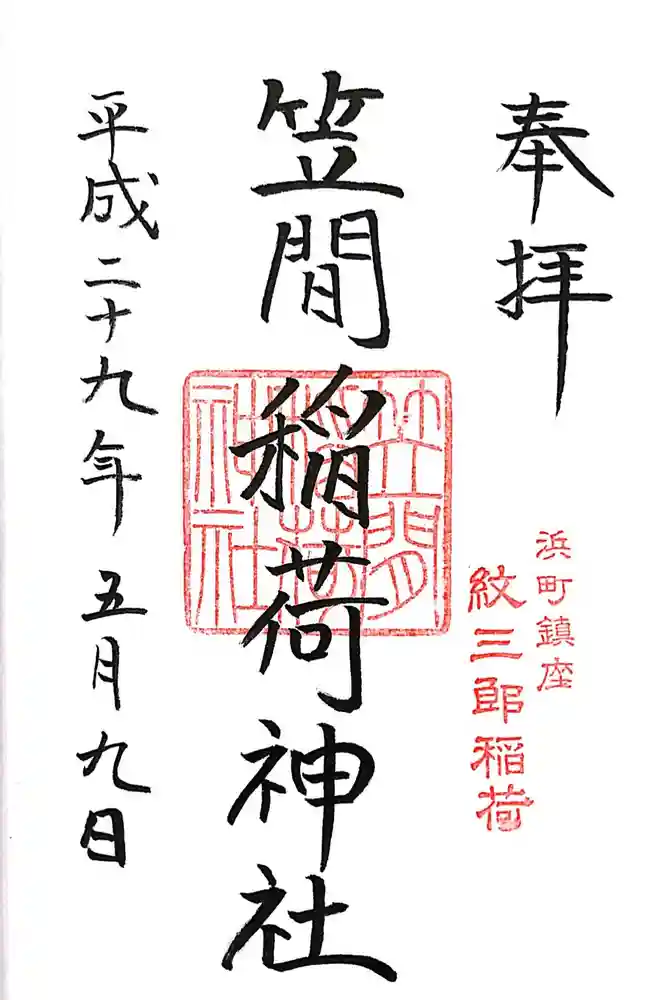 奉拝
浜町鎮座
紋三郎稲荷
笠間稲荷神社
笠間
稲荷
神社
平成二十九年五月九日